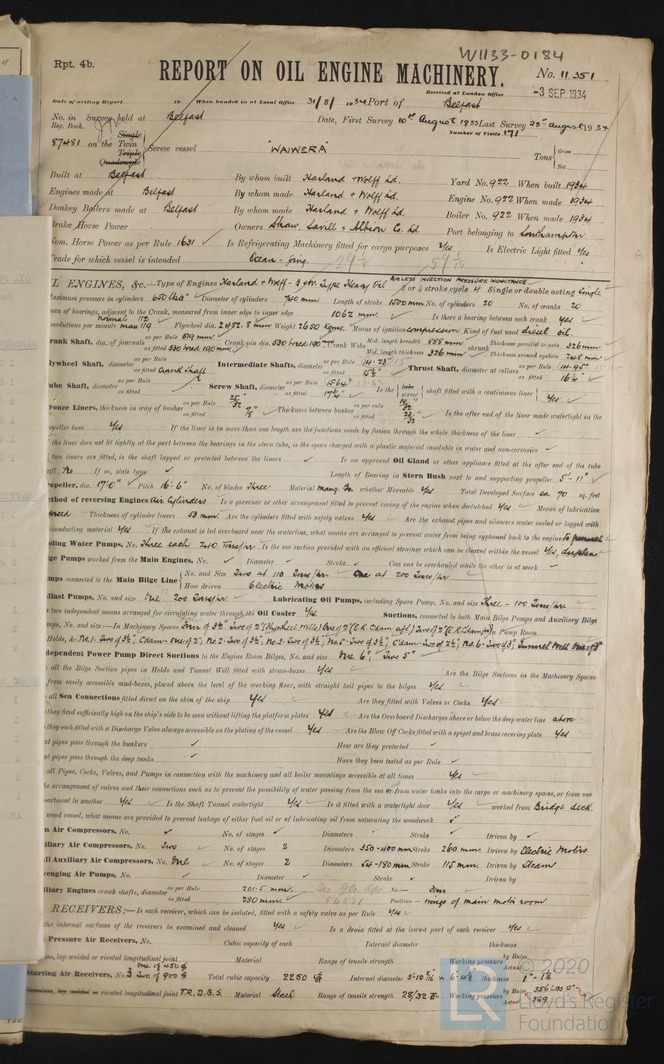 W1133-0184
Rpt. 4b.
REPORT ON OIL ENGINE MACHINERY.
No. 11351
Received at London Office
-3 SEP 1934
Date of writing Report 19 When handed in at Local Office 31/8/1934 Port of Belfast
No. in Survey held at Belfast Date, First Survey 10th August 1933 Last Survey 23rd August 1934
Reg. Book. Number of Visits 171
87481 on the Single Twin Triple Quadruple Screw vessel "WAIWERA" Tons Gross Net
Built at Belfast By whom built Harland & Wolff Ld. Yard No. 922 When built 1934
Engines made at Belfast By whom made Harland & Wolff Ld. Engine No. 922 When made 1934
Donkey Boilers made at Belfast By whom made Harland & Wolff Ld. Boiler No. 922 When made 1934
Brake Horse Power Owners Shaw, Savill & Albion Co. Ld. Port belonging to Southampton
Nom. Horse Power as per Rule 1631 Is Refrigerating Machinery fitted for cargo purposes Yes Is Electric Light fitted Yes
Trade for which vessel is intended Ocean-going.
OIL ENGINES, &c.—Type of Engines Harland & Wolff - B & W Type Heavy Oil 2 or 4 stroke cycle 4 Single or double acting Single
Maximum pressure in cylinders Diameter of cylinders 740 mm. Length of stroke 1500 mm No. of cylinders 20 No. of cranks 20
Span of bearings, adjacent to the Crank, measured from inner edge to inner edge 1062 mm. Is there a bearing between each crank Yes
Revolutions per minute max 119 Flywheel dia. Weight 2650 Kgms. Means of ignition compression Kind of fuel used diesel oil.
Crank Shaft, dia. of journals as per Rule 519 mm. as fitted 530 bored 190 mm. Crank pin dia. 530 bored 190 mm. Crank Webs Mid. length breadth 888 mm. Mid. length thickness 326 mm. shrunk Thickness parallel to axis 326 mm. Thickness around eyehole
Flywheel Shaft, diameter as per Rule as fitted crank shaft Intermediate Shafts, diameter as per Rule as fitted 15½" Thrust Shaft, diameter at collars as per Rule 14.95" as fitted 16¼"
Tube Shaft, diameter as per Rule as fitted Screw Shaft, diameter as per Rule 15.64" as fitted 17¼" Is the tube screw shaft fitted with a continuous liner Yes
Bronze Liners, thickness in way of bushes as per Rule as fitted 7/8" Thickness between bushes as per rule as fitted Is the after end of the liner made watertight in the
propeller boss Yes If the liner is in more than one length are the junctions made by fusion through the whole thickness of the liner
If the liner does not fit tightly at the part between the bearings in the stern tube, is the space charged with a plastic material insoluble in water and non-corrosive
If two liners are fitted, is the shaft lapped or protected between the liners Is an approved Oil Gland or other appliance fitted at the after end of the tube
shaft No If so, state type Length of Bearing in Stern Bush next to and supporting propeller 5'-11"
Propeller, dia. 17'-0" Pitch 16'-6" No. of blades Three Material Mang. Bz. whether Moveable Yes Total Developed Surface ea. 70 sq. feet
Method of reversing Engines Air Cylinders Is a governor or other arrangement fitted to prevent racing of the engine when declutched Yes Means of lubrication
forced Thickness of cylinder liners 53 mm. Are the cylinders fitted with safety valves Yes Are the exhaust pipes and silencers water cooled or lagged with
non-conducting material Yes If the exhaust is led overboard near the waterline, what means are arranged to prevent water from being syphoned back to the engine to funnel
Cooling Water Pumps, No. Three each 240 Tons/hr. Is the sea suction provided with an efficient strainer which can be cleared within the vessel Yes, duplex
Bilge Pumps worked from the Main Engines, No. Diameter Stroke Can one be overhauled while the other is at work
Pumps connected to the Main Bilge Line No. and Size Two at 110 Tons/hr. One at 200 Tons/hr. How driven Electric Motors
Ballast Pumps, No. and size One 200 Tons/hr Lubricating Oil Pumps, including Spare Pump, No. and size Three - 100 Tons/hr
Are two independent means arranged for circulating water through the Oil Cooler Yes. Suctions, connected to both Main Bilge Pumps and Auxiliary Bilge
Pumps, No. and size:—In Machinery Spaces Four of 3½" Two of 2" (Flywheel Wells) One of 2" (E.R. Cdam. aft) In Pump Room
Holds, &c. No.1-Two of 3½", Cdam-One of 2", No.2-Two of 3½", No.3-Two of 3½", No.5-Two of 3½", Cdam-Two of 2½", No.6-Two of 3", Tunnel Well One of 3"
Independent Power Pump Direct Suctions to the Engine Room Bilges, No. and size One 6", Two 5"
Are all the Bilge Suction pipes in Holds and Tunnel Well fitted with strum-boxes Yes Are the Bilge Suctions in the Machinery Spaces
from easily accessible mud-boxes, placed above the level of the working floor, with straight tail pipes to the bilges Yes
Are all Sea Connections fitted direct on the skin of the ship Yes Are they fitted with Valves or Cocks Yes
Are they fixed sufficiently high on the ship's side to be seen without lifting the platform plates Yes Are the Overboard Discharges above or below the deep water line above
Are they each fitted with a Discharge Valve always accessible on the plating of the vessel Yes Are the Blow Off Cocks fitted with a spigot and brass covering plate Yes
What pipes pass through the bunkers How are they protected
What pipes pass through the deep tanks Have they been tested as per Rule
Are all Pipes, Cocks, Valves, and Pumps in connection with the machinery and all boiler mountings accessible at all times Yes
Is the arrangement of valves and their connections such as to prevent the possibility of water passing from the sea or from water tanks into the cargo or machinery spaces, or from one
compartment to another Yes Is the Shaft Tunnel watertight Yes Is it fitted with a watertight door Yes worked from Bridge deck.
If a wood vessel, what means are provided to prevent leakage of either fuel oil or of lubricating oil from saturating the woodwork
Main Air Compressors, No. No. of stages Diameters Stroke Driven by
Auxiliary Air Compressors, No. Two No. of stages 2 Diameters 350-400 mm. Stroke 260 mm. Driven by Electric Motors
Small Auxiliary Air Compressors, No. One No. of stages 2 Diameters 54-180 mm Stroke 115 mm. Driven by Steam
Scavenging Air Pumps, No. Diameter Stroke Driven by
Auxiliary Engines crank shafts, diameter as per Rule 201.5 mm. as fitted 230 mm. No. Position - wings of main motor room
AIR RECEIVERS:—Is each receiver, which can be isolated, fitted with a safety valve as per Rule Yes
Can the internal surfaces of the receivers be examined and cleaned Yes Is a drain fitted at the lowest part of each receiver Yes
High Pressure Air Receivers, No. Cubic capacity of each Internal diameter thickness
Seamless, lap welded or riveted longitudinal joint Material Range of tensile strength Working pressure by Rules Actual
Starting Air Receivers, No. 3 One of 450 Two of 900 Total cubic capacity 2250 Internal diameter thickness
Seamless, lap welded or riveted longitudinal joint T.R.D.B.S. Material Steel Range of tensile strength 28/32 T. Working pressure by Rules Actual
LR © 2020
Lloyd's Register
Foundation